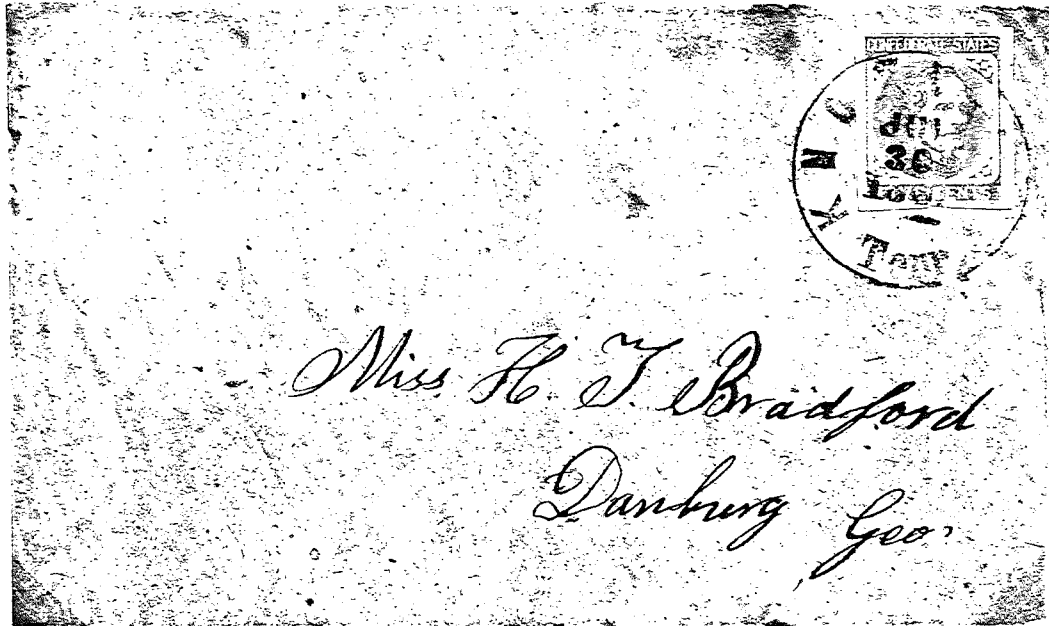 CONFEDERATE STATES
KNO
30
Tenn
Miss H. T. Bradford
Danburg Geo.